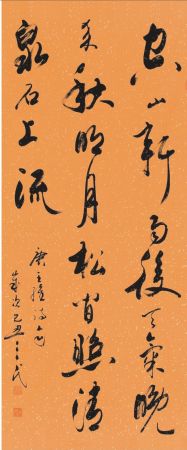 空山新雨後天氣晚
來秋明月松間照清
泉石上流
唐王維詩句
歲次己丑